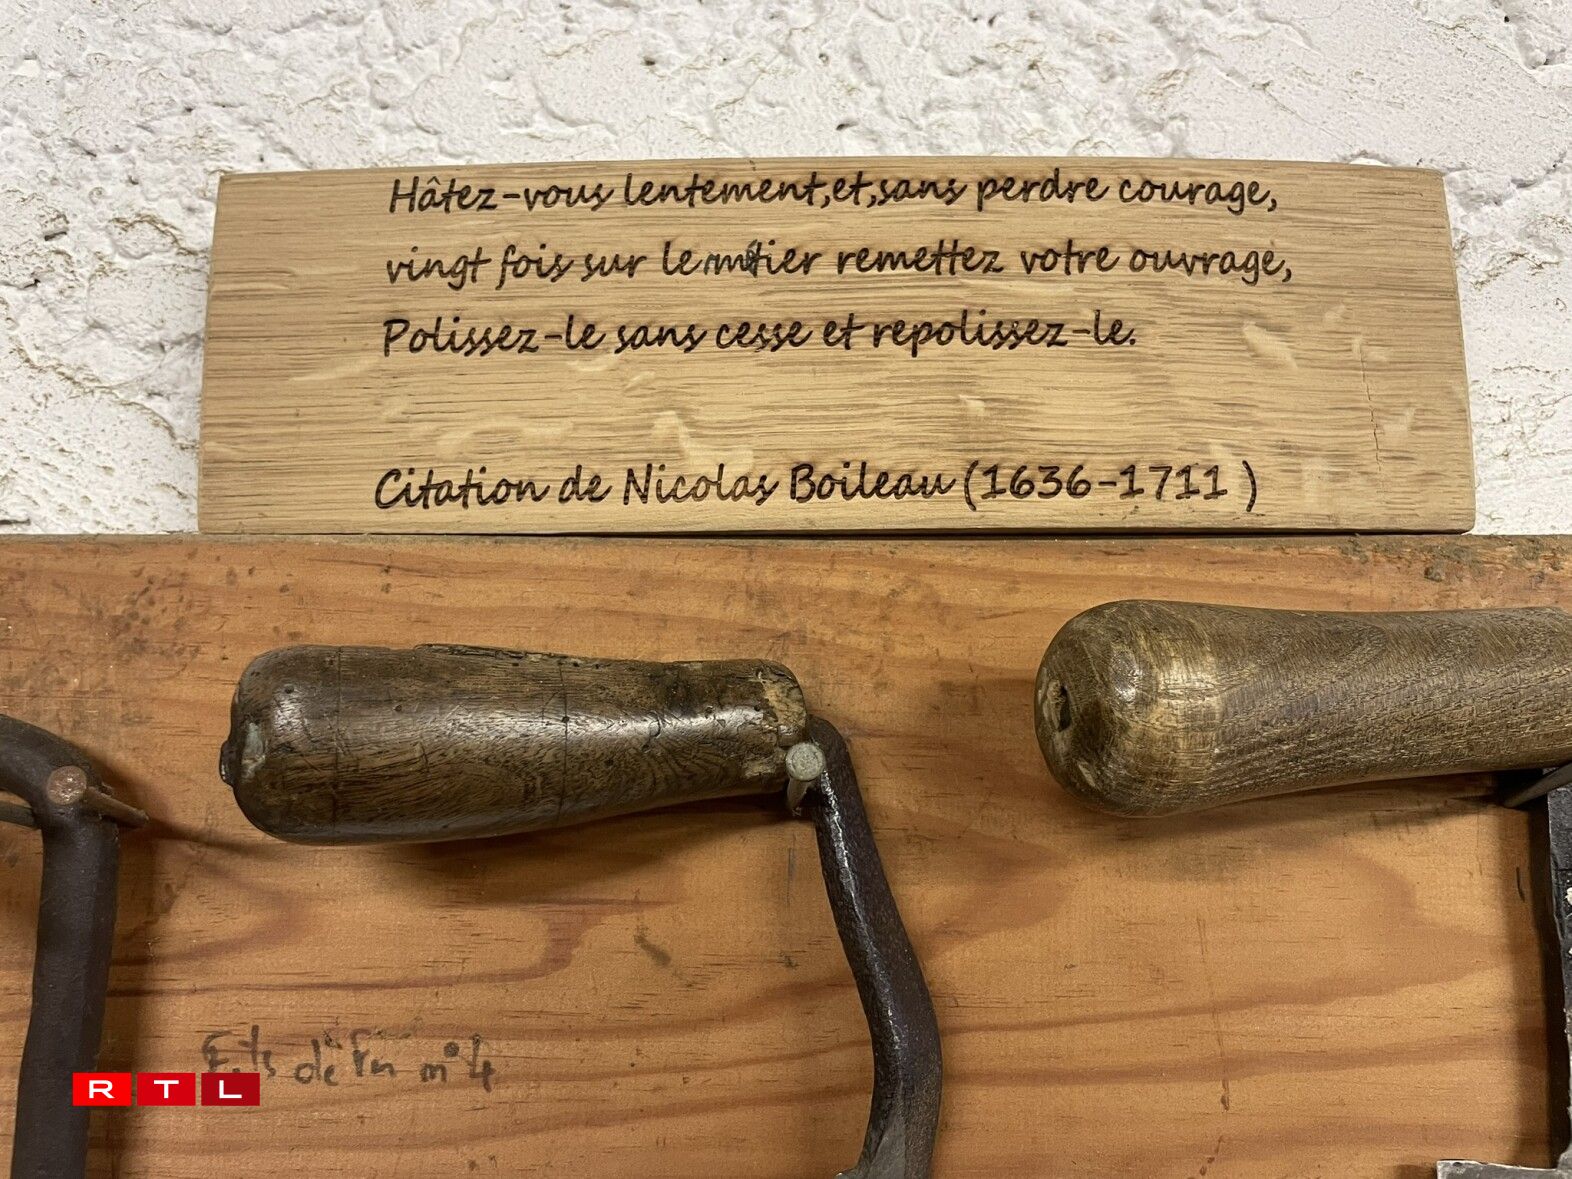 Hâtez-vous lentement,et,sans perdre courage,
vingt fois sur le métier remettez votre ouvrage,
Polissez-le sans cesse et repolissez-le.
Citation de Nicolas Boileau (1636-1711 )
de n°4
RTL